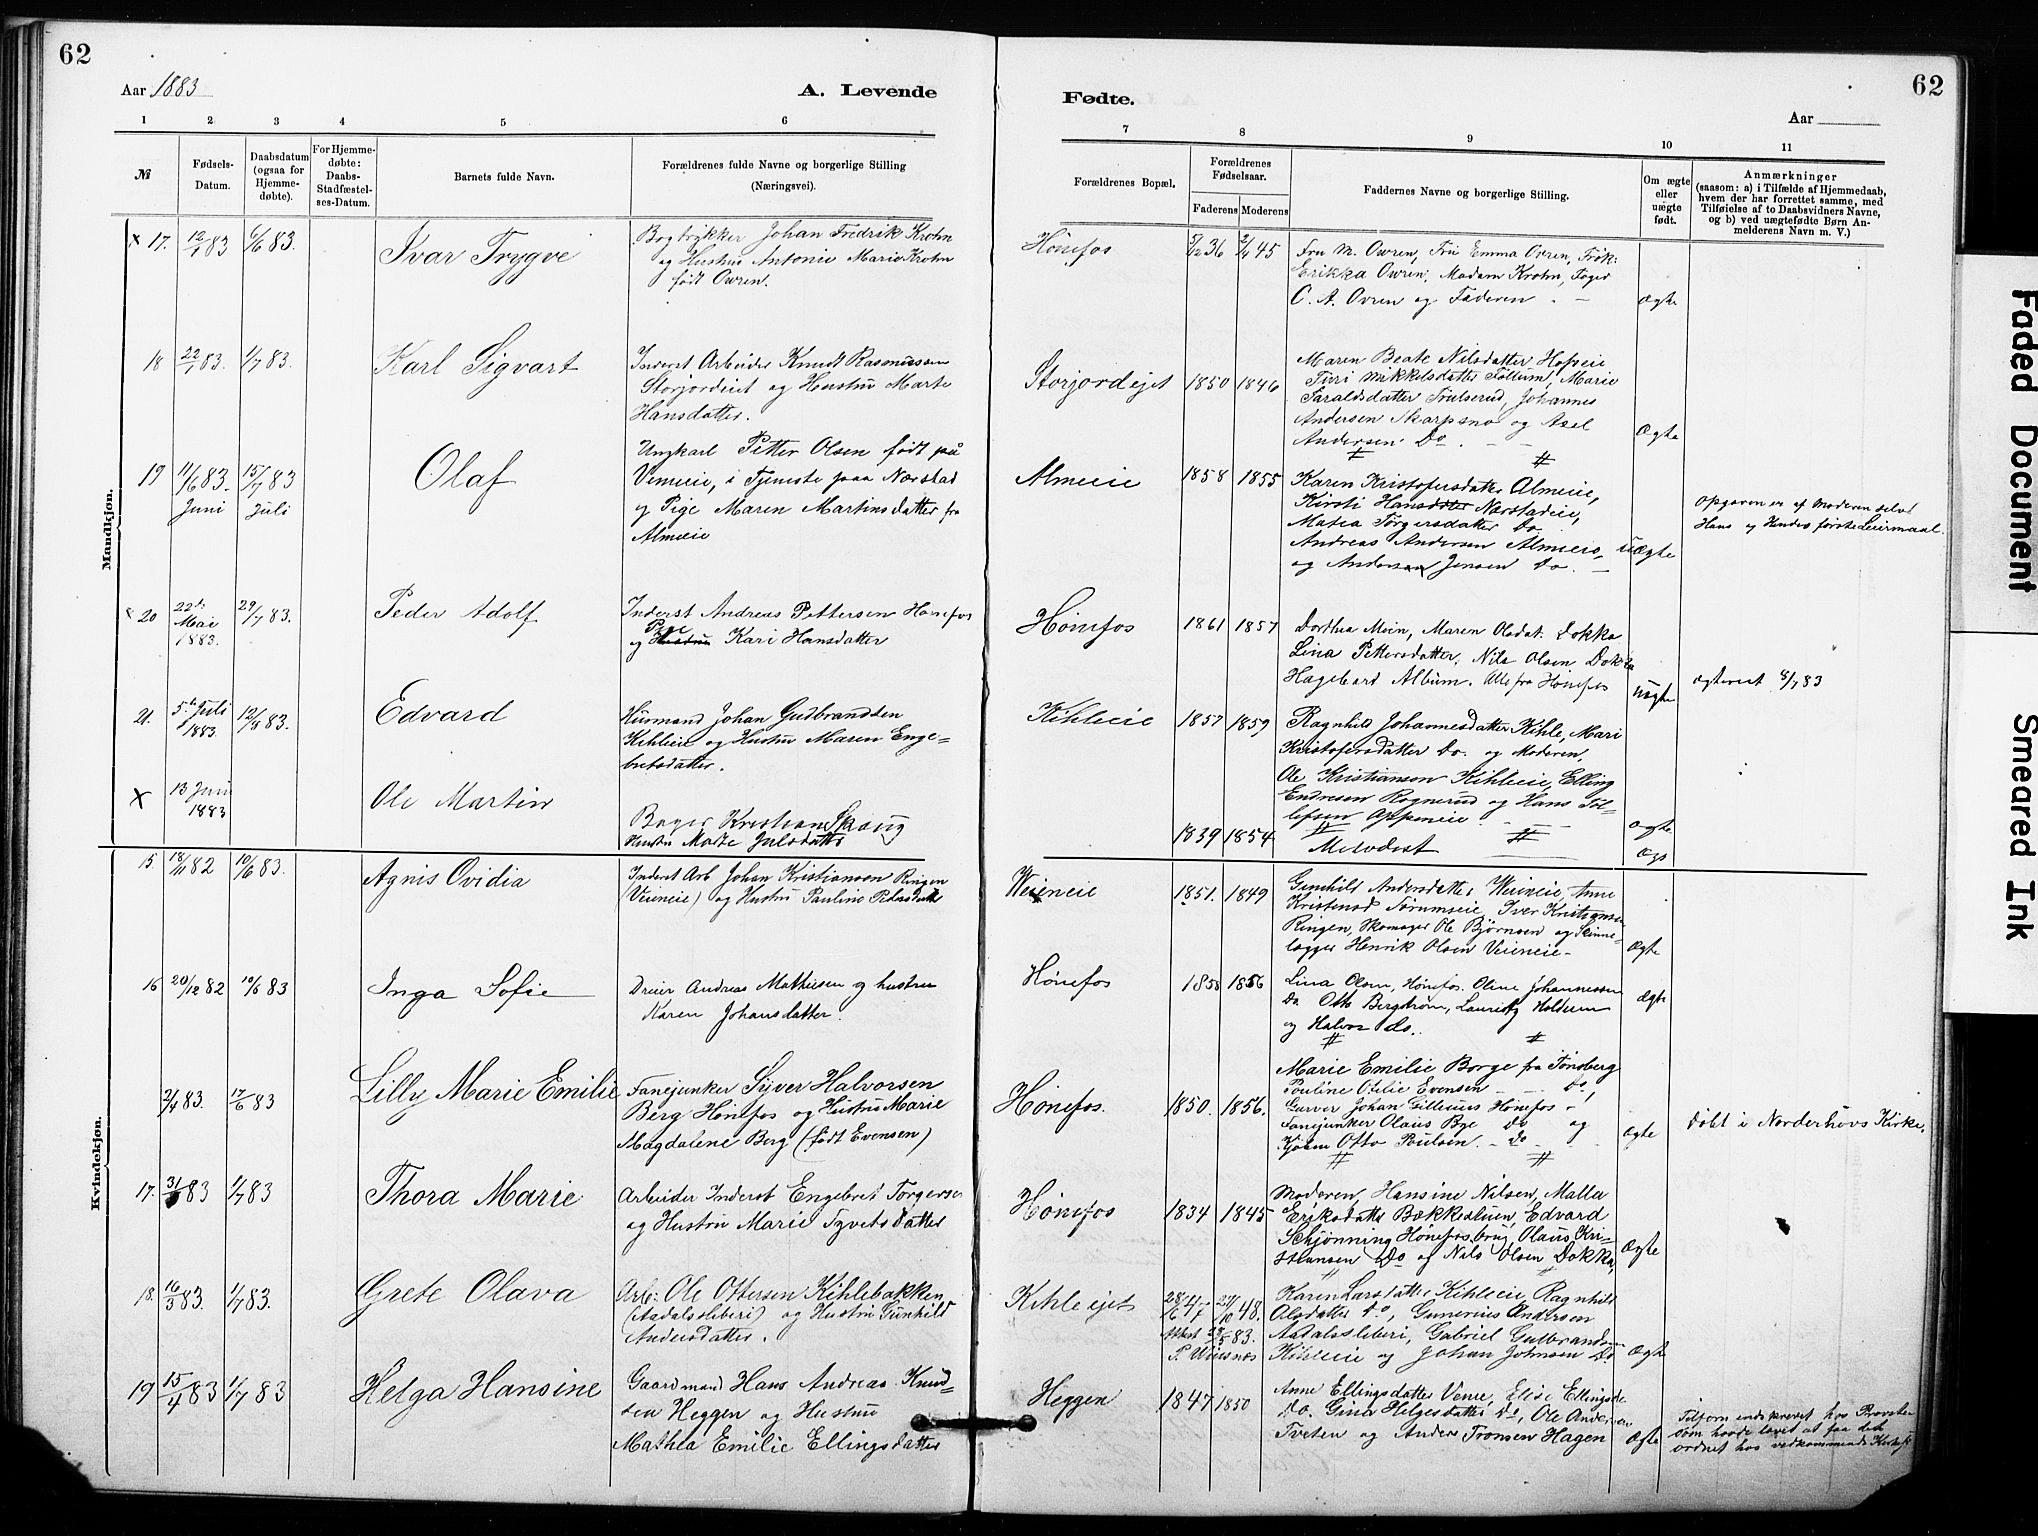 62
Aar 1883
A. Levende
1 2 3 4 5 6
№
Fødsels-
Datum.
Daabsdatum
(ogsaa for
Hjemme-
døbte).
For Hjemme-
døbte:
Daabs-
Stadfæstel-
ses-Datum.
Barnets fulde Navn.
Forældrenes fulde Navne og borgerlige Stilling
(Næringsvei).
Mandkjøn.
x 17. 12/1 83 6/6 83.
Ivar Trygve
Bogtrykker Johan Fredrik Krohn
og Hustru Antonie Marie Krohn
født Owren.
18 22/1 83. 1/7 83.
Karl Sigvart
Inderst Arbeider Knudt Rasmussen
Storjordeiet og Hustru Marte
Hansdatter.
19 11/6 83. 15/7 83
Juni Juli
Olaf
Ungkarl Petter Olsen født på
Vemeie, i Tjeneste paa Nærstad
og Pige Maren Martinsdatter fra
Almeie
x 20 22de Mai 1883. 29/7 83.
Peder Adolf
Inderst Andreas Pettersen Hønefos
Pige
og Hustru Kari Hansdatter
21. 5te Juli 1883. 12/8 83.
Edvard
Husmand Johan Gudbrandsen
Kihleie og Hustru Maren Enge-
bretsdatter.
x 13 Juni 1883
Ole Martin
Bager Kristian Skaug
Hustru Marte Julsdatter
Kvindekjøn.
15 18/11 82 10/6 83.
Agnis Ovidia
Inderst Arb Johan Kristiansen Ringen
(Veieneie) og Hustru Pauline Pedersdatter
16 20/12 82 10/6 83
Inga Sofie
Dreier Andreas Mathiesen og hustru
Karen Johansdatter.
2/4 83. 17/6 83
Lilly Marie Emilie
Fanejunker Syver Halvorsen
Berg Hønefos og Hustru Marie
Magdalene Berg (født Evensen)
17. 31/ 83 1/7 83
Thora Marie
Arbeider Inderst Engebret Torgersen
og Hustru Marie Syvertsdatter
18. 16/3 83. 1/7 83.
Grete Olava
Arb: Ole Ottersen Kihlebakken
(Aadalssleberi) og Hustru Gunhild
Andersdatter.
19 15/4 83 1/7 83
Helga Hansine
Gaardmand Hans Andreas Knud-
sen Heggen og Hustru
Mathea Emilie Ellingsdatter
62
Fødte.
Aar
7 8 9 10 11
Forældrenes Bopæl.
Forældrenes
Fødselsaar.
Faderens Moderens
Faddernes Navne og borgerlige Stilling.
Om ægte
eller
uægte
født.
Anmærkninger
(saasom: a) i Tilfælde af Hjemmedaab,
hvem der har forrettet samme, med
Tilføielse af to Daabsvidners Navne,
og b) ved uægtefødte Børn An-
melderens Navn m. V.)
Hønefos 5/12 36 2/4 45
Fru M. Owren, Fru Emma Owren, Frøk:
Erikka Owren, Madam Krohn, Foged
C. A. Ovren og Faderen
Ægte
Storjordejet 1850 1846
Maren Beate Nilsdatter Hofseie
Turi Mikkelsdatter Follum, Marie
Faraldsdatter Trulserud, Johannes
Andersen Skarpsno og Axel
Andersen Do.
Ægte
Almeie 1858 1855
Karen Kristofersdatter Almeie,
Kirsti Hansdatter Nærstadeie,
Matea Torgersdatter Do
Andreas Andersen Almeie
og Andersen Jensen Do.
uægte
Opgaven er af Moderen selv
Hans og Hendes første Leiermaal.
Hønefos 1861 1857
Dorthea Moin, Maren Olsdat. Dokka
Lina Pettersdatter, Nils Olsen Dokka
Hagebart Album. Alle fra Hønefos
uægte
ægteviet 8/7 83
Kihleie 1857 1859
Ragnhild Johannesdatter Kihle, Mari
Kristofersdatter Do. og Moderen,
Ole Kristianson Kihleie, Elling
Endresen Rognerud og Hans Tol-
lefsen Oppeneie
Ægte
1839 1854
Metodist
Ægt
Weieneie 1851. 1849
Gunhild Andersdatter Weieneie, Anne
Kristensd Tørumseie, Iver Kristiansen
Ringen, Skomager Ole Bjørnsen og Skinne-
lægger Henrik Olsen Veieneie
Ægte
Hønefos 1858 1856
Lina Olsen, Hønefos. Oline Johannessen
Do. Otto Bergstrøm, Lauritz Holtsum
og Halvor do.
Ægte
Hønefos. 1850. 1856.
Marie Emilie Borge fra Tønsberg
Pauline Otilie Evensen Do,
Garver Johan Gillesius Hønefos
Fanejunker Olaus Bye Do og
Kjøbm Otto Poulsen Do
Ægte
Døbt i Norderhovs Kirke.
Hønefos 1834 1845
Moderen, Hansine Nilsen, Malla
Eriksdatter Bækkealuen, Edvard
Schjønning Hønefos brug, Olaus Kri-
stiansen Do og Nils Olsen Dokka,
Ægte
Kihleiet 28/6 47 29/10 48.
Attest 28/5 83.
Karen Larsdatter Kihleeie, Ragnhild
Olsdatter Do, Gunerius Andersen
Aadalssleberi, Gabriel Gulbrandsen
Kihleeie og Johan Johnsen Do
Ægte
Heggen 1847 1850
Anne Ellingsdatter Venie, Elise Ellingsda
Do. Gina Helgesdatter Do, Ole Andersen
Tveten og Anders Tronsen Hagen
Ægte
Tilforn indskrevet hos Provsten
som havde lovet at faa det
ordnet hos vedkommende Kirkesk
Faded Document
Smeared Ink